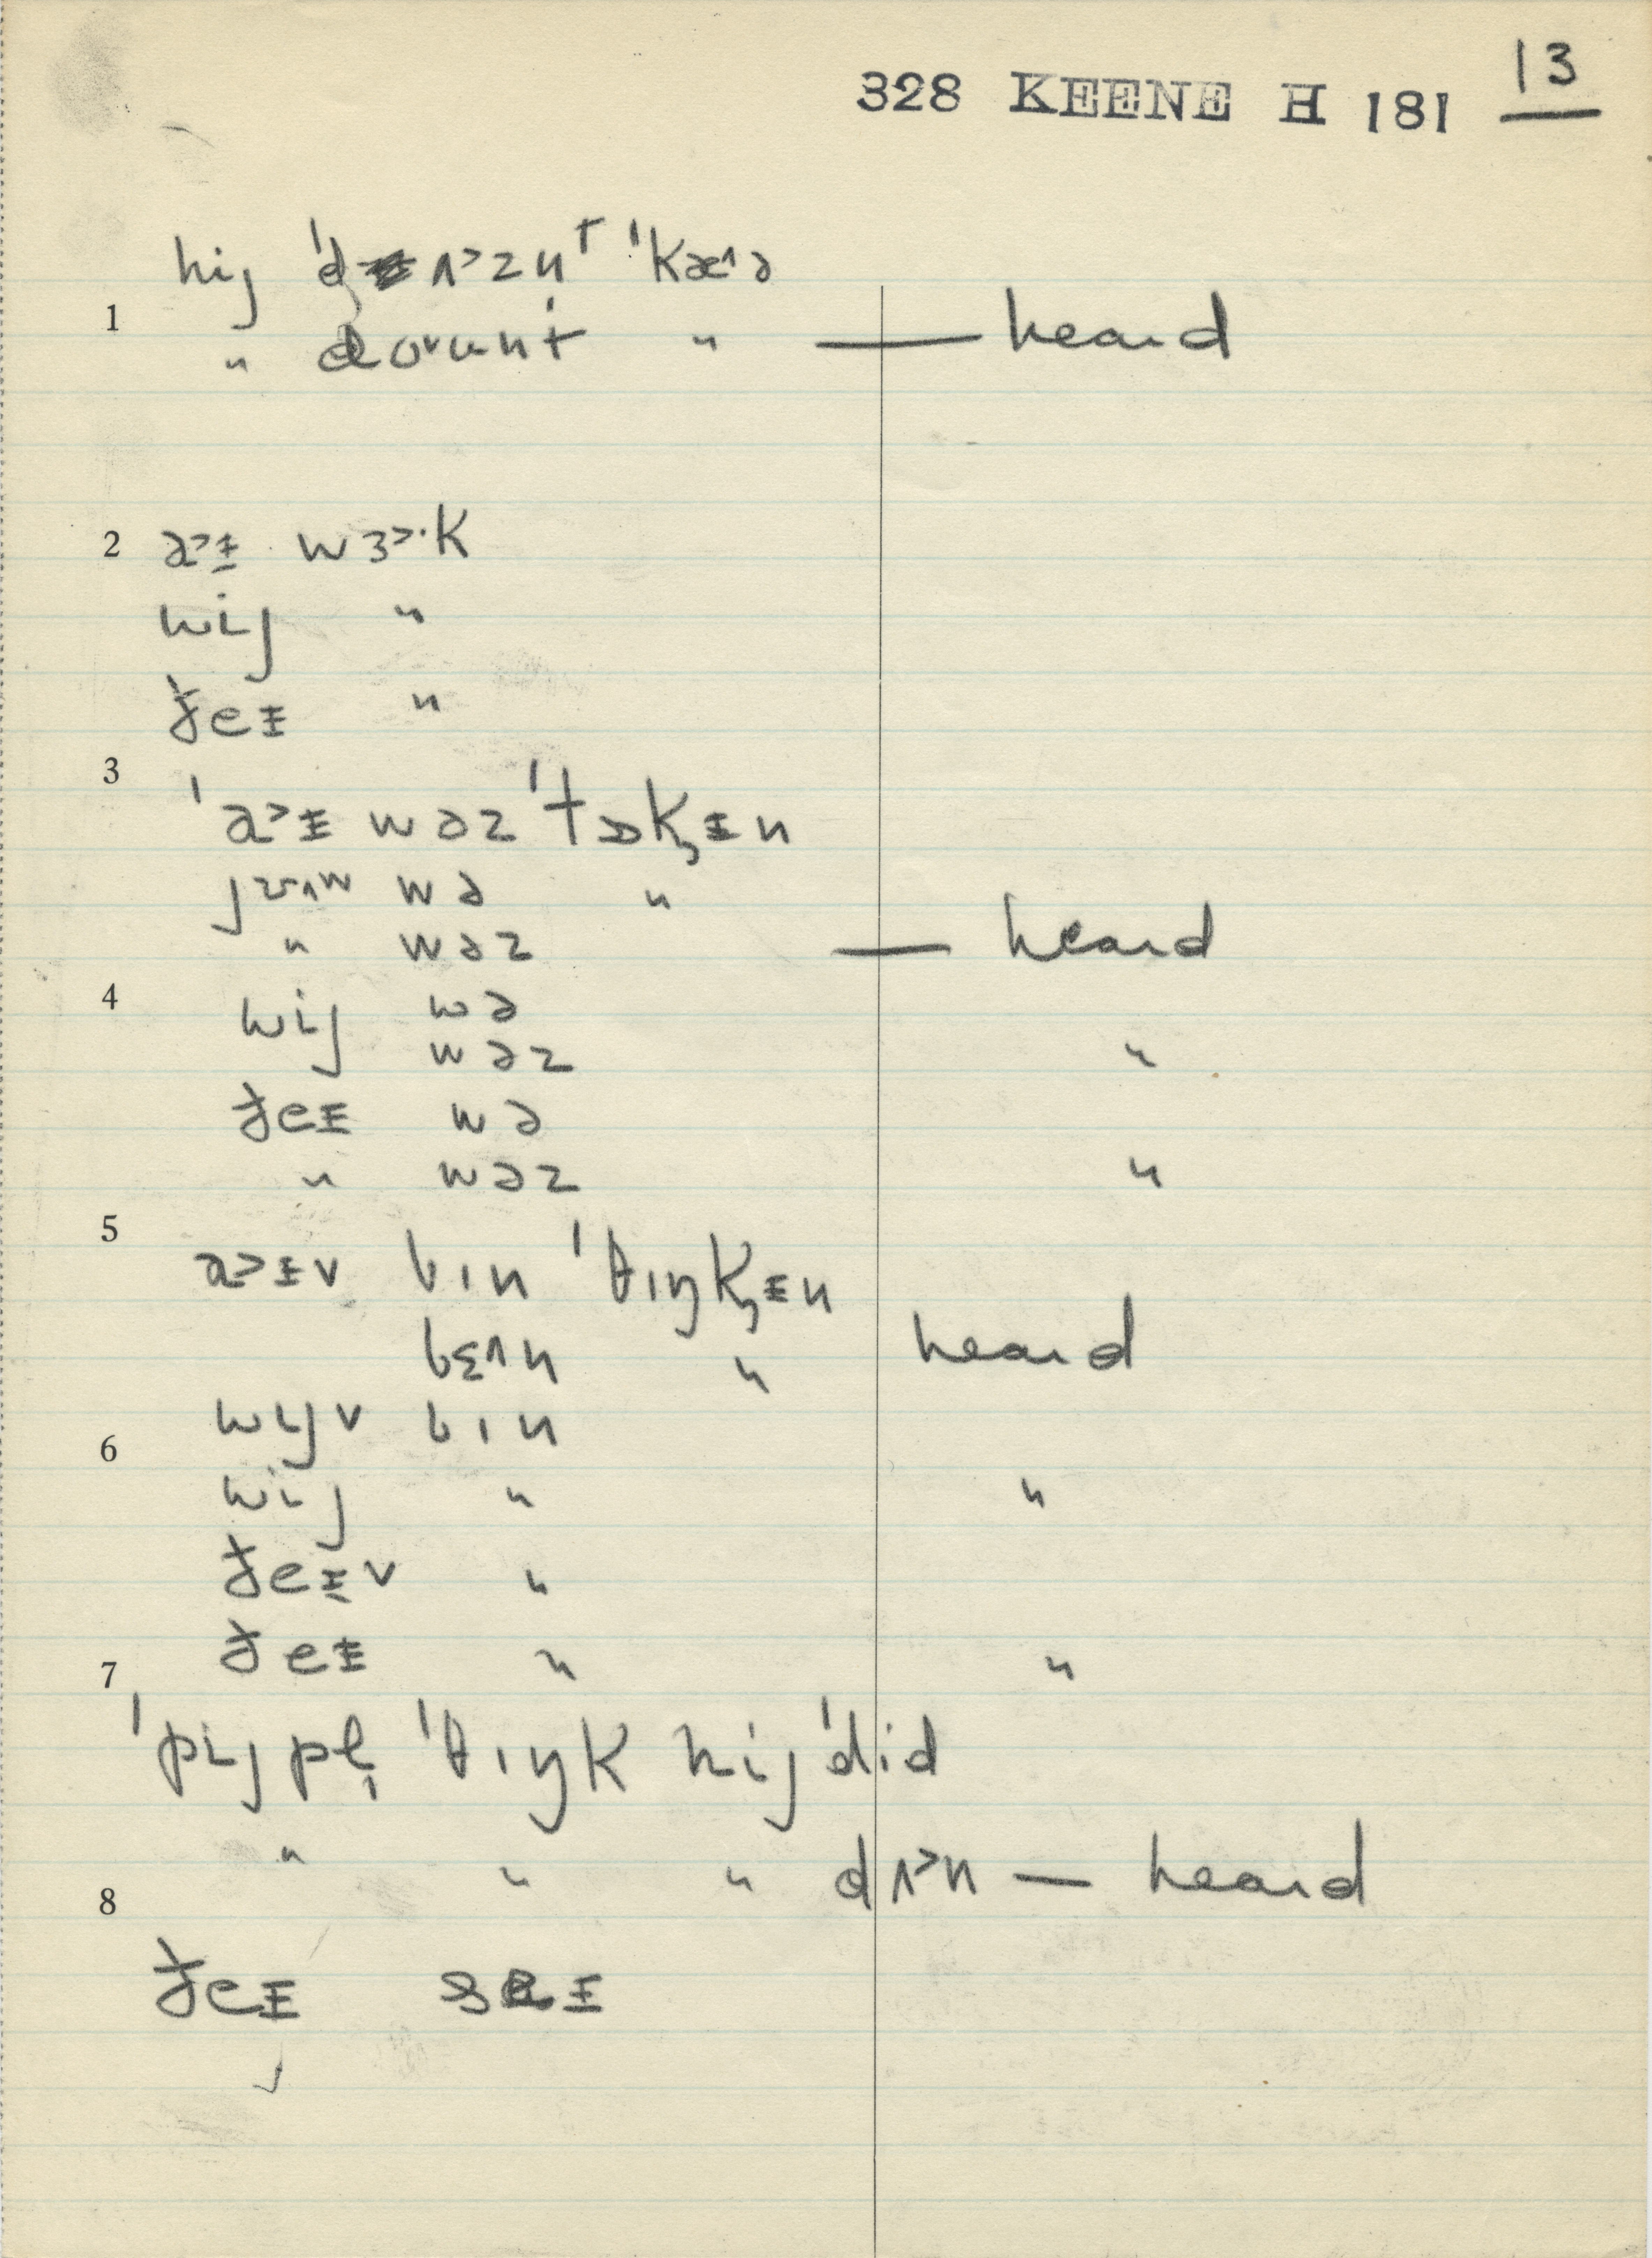 328 KEENE H 181 13
hij ˈdʌ˃znᵗ ˈkæ˄ə
1
" do˅ʉnt " — heard
2 a˃ᵻ wɜ˃·k
wij "
ðeᵻ "
3
ˈa˃ᵻ wəz ˈtɒkᵻn
jʊ˄w wə "
" wəz — heard
4
wij wə
wəz "
ðeᵻ wə
" wəz "
5
a˃ᵻv bɪn ˈθɪŋkᵻn
bɛ˄n " heard
wijv bɪn
6
wij " "
ðeᵻv "
ðeᵻ " "
7
ˈpijpl̩ ˈθɪŋk hij ˈdɪd
" " " dʌ˃n — heard
8
ðeᵻ